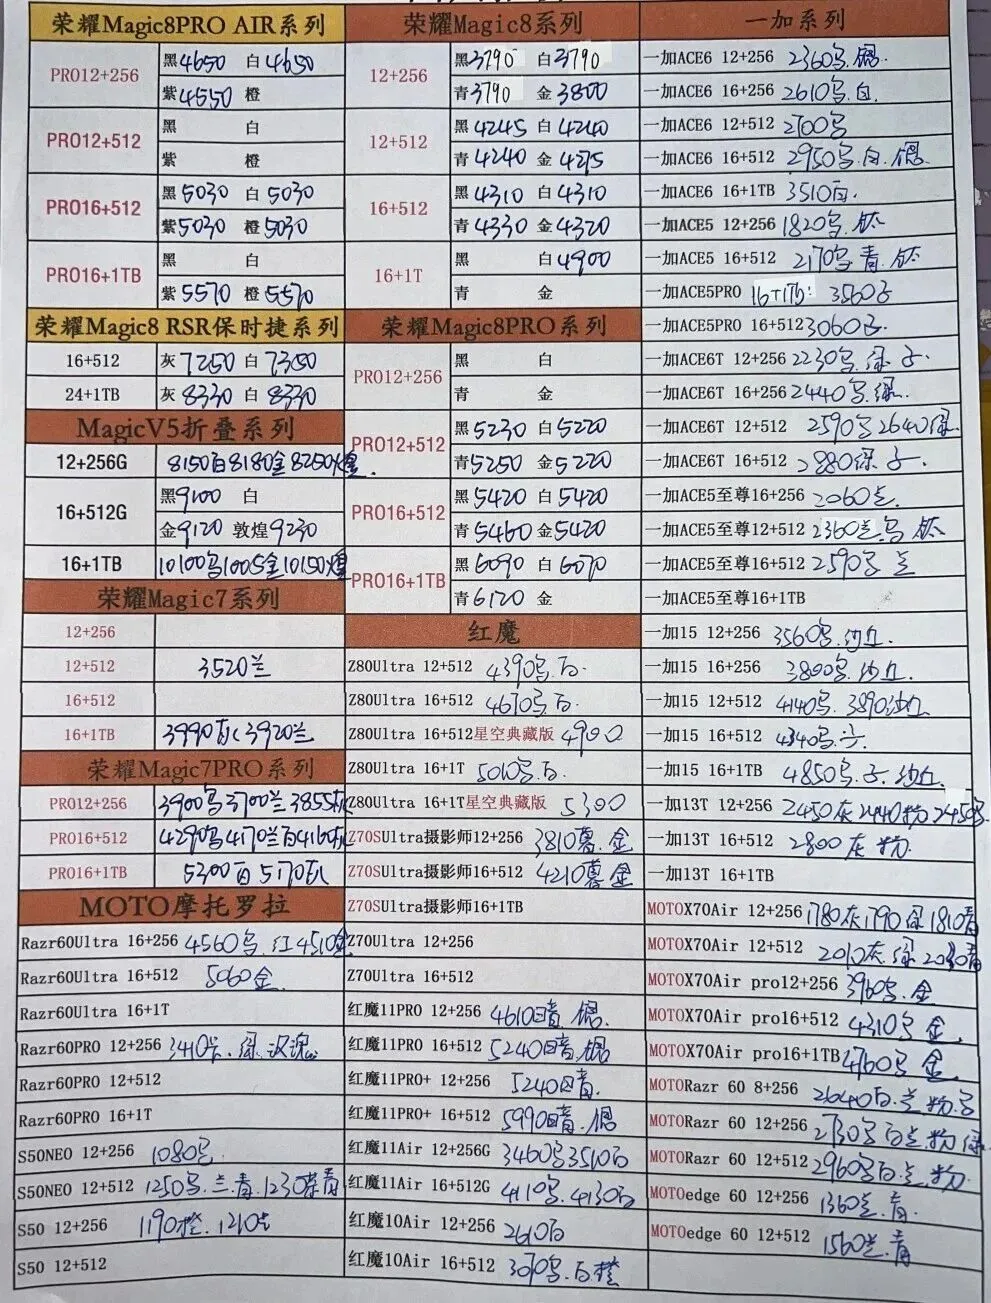 荣耀Magic8PRO AIR系列
PRO12+256 黑4650 白4650
紫4550 橙
PRO12+512 黑 白
紫 橙
PRO16+512 黑5030 白5030
紫5030 橙5030
PRO16+1TB 黑 白
紫5570 橙5570
荣耀Magic8 RSR保时捷系列
16+512 灰7250 白7350
24+1TB 灰8330 白8330
MagicV5折叠系列
12+256G 8150白8180金8250煌
16+512G 黑9100 白
金9120 敦煌9230
16+1TB 10100乌10050金10150煌
荣耀Magic7系列
12+256
12+512 3520兰
16+512
16+1TB 3990灰 3920兰
荣耀Magic7PRO系列
PRO12+256 3900乌3700兰3855灰
PRO16+512 4290乌4170兰白4160灰
PRO16+1TB 5300白5170灰
MOTO摩托罗拉
Razr60Ultra 16+256 4560乌.红4510金
Razr60Ultra 16+512 5060金
Razr60Ultra 16+1T
Razr60PRO 12+256 3410 绿
Razr60PRO 12+512
Razr60PRO 16+1T
S50NEO 12+256 1080乌.
S50NEO 12+512 1250乌.兰.青.1230 青
S50 12+256 1190橙.1210
S50 12+512
荣耀Magic8系列
12+256 黑3790 白3790
青3790 金3800
12+512 黑4245 白4240
青4240 金4275
16+512 黑4310 白4310
青4330 金4320
16+1T 黑 白4900
青 金
荣耀Magic8PRO系列
PRO12+256 黑 白
青 金
PRO12+512 黑5230 白5220
青5250 金5220
PRO16+512 黑5420 白5420
青5460 金5420
PRO16+1TB 黑6090 白6070
青6120 金
红魔
Z80Ultra 12+512 4390乌.白
Z80Ultra 16+512 4670乌.白
Z80Ultra 16+512星空典藏版 4900
Z80Ultra 16+1T 5010乌.白.
Z80Ultra 16+1T星空典藏版 5300
Z70SUltra摄影师12+256 3810暮.金
Z70SUltra摄影师16+512 4210暮.金
Z70SUltra摄影师16+1TB
Z70Ultra 12+256
Z70Ultra 16+512
红魔11PRO 12+256 4610暗.银.
红魔11PRO 16+512 5240暗.银
红魔11PRO+ 12+256 5240暗.
红魔11PRO+ 16+512 5990暗.银
红魔11Air 12+256G 3460乌3510白
红魔11Air 16+512G 4110乌.4130白
红魔10Air 12+256 2610白
红魔10Air 16+512 3070乌.白橙
一加系列
一加ACE6 12+256 2360乌.银.
一加ACE6 16+256 2610乌.白.
一加ACE6 12+512 2700乌
一加ACE6 16+512 2950乌.白.银.
一加ACE6 16+1TB 3510白.
一加ACE5 12+256 1820乌.钛
一加ACE5 16+512 2170乌青.钛
一加ACE5PRO 16+1Tb: 3560
一加ACE5PRO 16+512 3060
一加ACE6T 12+256 2230乌.绿 子.
一加ACE6T 16+256 2440乌.绿.
一加ACE6T 12+512 2590乌2640绿
一加ACE6T 16+512 2880绿 子.
一加ACE5至尊16+256 2060兰
一加ACE5至尊12+512 2360兰.乌 钛
一加ACE5至尊16+512 2590乌 兰
一加ACE5至尊16+1TB
一加15 12+256 3560乌.沙丘
一加15 16+256 3800乌.沙丘
一加15 12+512 4140乌.3890沙丘
一加15 16+512 4340乌.
一加15 16+1TB 4850乌.子.沙丘
一加13T 12+256 2450灰2440粉2450乌
一加13T 16+512 2800灰 粉.
一加13T 16+1TB
MOTOX70Air 12+256 1780灰1790绿1810青
MOTOX70Air 12+512 2010灰.绿2030青
MOTOX70Air pro12+256 3960乌.金
MOTOX70Air pro16+512 4310乌 金.
MOTOX70Air pro16+1TB 4760乌 金.
MOTORazr 60 8+256 2640白.兰.粉.乌
MOTORazr 60 12+256 2730乌白兰粉绿
MOTORazr 60 12+512 2960乌白.兰.粉.
MOTOedge 60 12+256 1360兰.青.
MOTOedge 60 12+512 1560兰.青